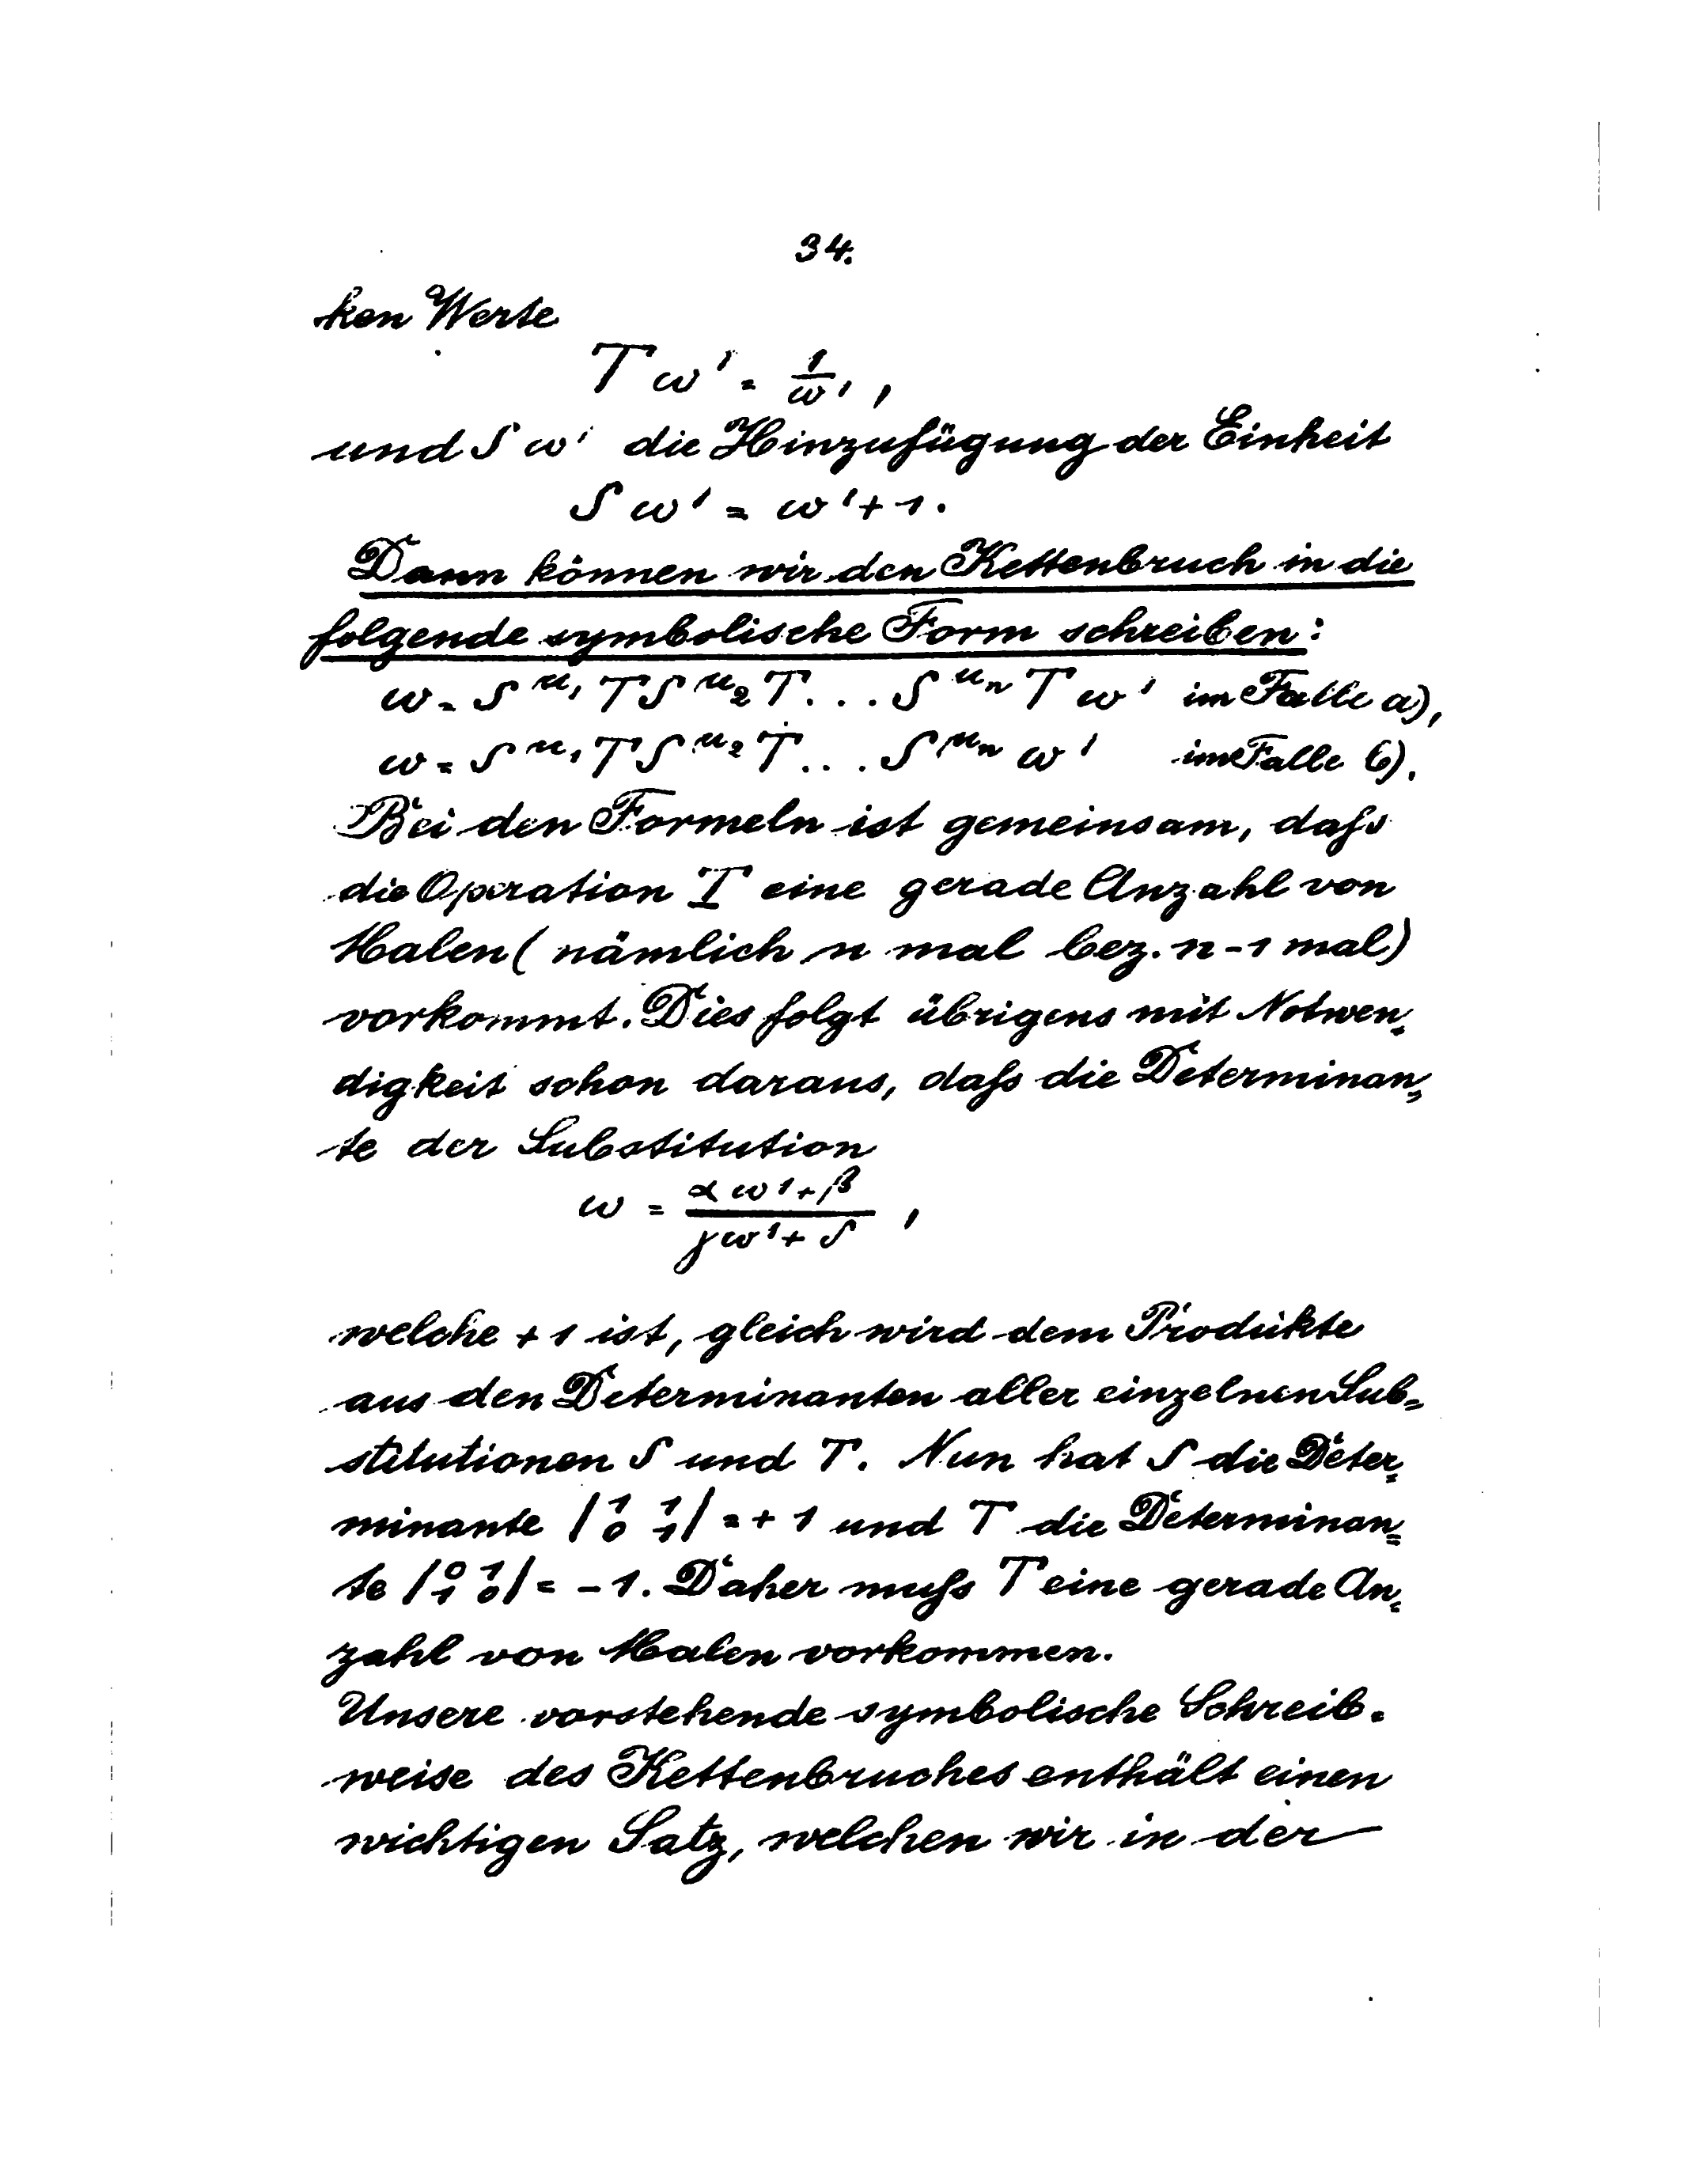 34.
ken Werte
T ω' = 1/ω',
und S ω' die Hinzufügung der Einheit
S ω' = ω' + 1.
Dann können wir den Kettenbruch in die
folgende symbolische Form schreiben:
ω = S^μ₁ T S^μ₂ T . . . S^μₙ T ω' im Falle a),
ω = S^μ₁ T S^μ₂ T . . . S^μₙ ω' im Falle b).
Bei den Formeln ist gemeinsam, daſs
die Operation T eine gerade Anzahl von
Malen (nämlich n mal bez. n-1 mal)
vorkommt. Dies folgt übrigens mit Notwen=
digkeit schon daraus, daſs die Determinan=
te der Substitution
ω = (αω' + β)/(γω' + δ) ,
welche + 1 ist, gleich wird dem Produkte
aus den Determinanten aller einzelnen Sub=
stitutionen S und T. Nun hat S die Deter=
minante |1 1; 0 1| = + 1 und T die Determinan=
te |0 1; 1 0| = - 1. Daher muſs T eine gerade An=
zahl von Malen vorkommen.
Unsere vorstehende symbolische Schreib=
weise des Kettenbruches enthält einen
wichtigen Satz, welchen wir in der